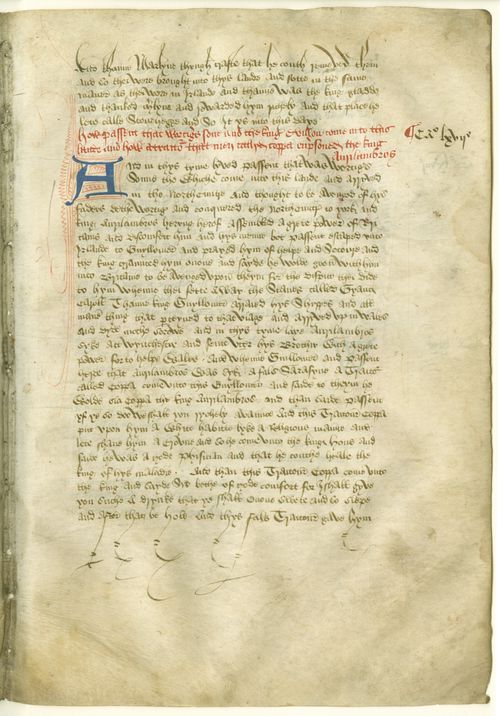 thanne Marlyne thrugh crafte that he couth remeved them
and so thei were brought into thys lande and sette in the same
maner as thei were in Irlande and thanne was the king gladde
and thanked Merlyne and rewarded hym richely and that place he
lete calle Stonehegge and so it ys into this daye
How passent that was sone and the king of come into
and how a traitour that men callyn coppa enpoysoned the king
Aurilambros
Ca
And in thys tyme lyved passent that was
Sonne the whiche come into this lande and arrived
in the North Cuntre and thought to be avenged of hys
faders dethe and conquered the North Cuntre to york and
king Aurilambros hering herof assembled a grete power of Bri
tans and discomfit hym and hys menne but passent escaped unto
Irlande to Guyllomer and prayed hym of helpe and socoure and
the king graunted hym onone and sayde he wolde gon with hym
into Britane to be avenged upon theym for the disease thei dide
to hym whenne thei fette away the stones called Gyantz
Caroll Thanne king Guyllomer arraied hys shippes and all
maner thing that perteyned to that viage and arrived up in Wales
and dyde moche sorowe and in thys tyme was Aurilambros
syke at Wynchester and sente Uter hys brother with a grete
power for to helpe Wales And whenne Guillomer and Passent
herde that Aurilambros was syke a fals Sarasyne a traitour
called Coppa come unto this Guyllomer and saide to theym he
wolde sla the king Aurilambros and than saide Passent
yf ye so doo we shall you rychely avaunce And this traitour Coppa
put upon hym a white habite lyke a Religious manne and
lete shave hym a crowne and so he come unto the kinges hous and
saide he was a gode phisician and that he couthe heale the
king of hys maladie And than this traitour Coppa come unto
the king and sayde Sir bethe of gode comfort for I shall gyve
you suche a drynke that ye shall onone swete and so slepe
and after that be hole And thys fals traitour gave hym